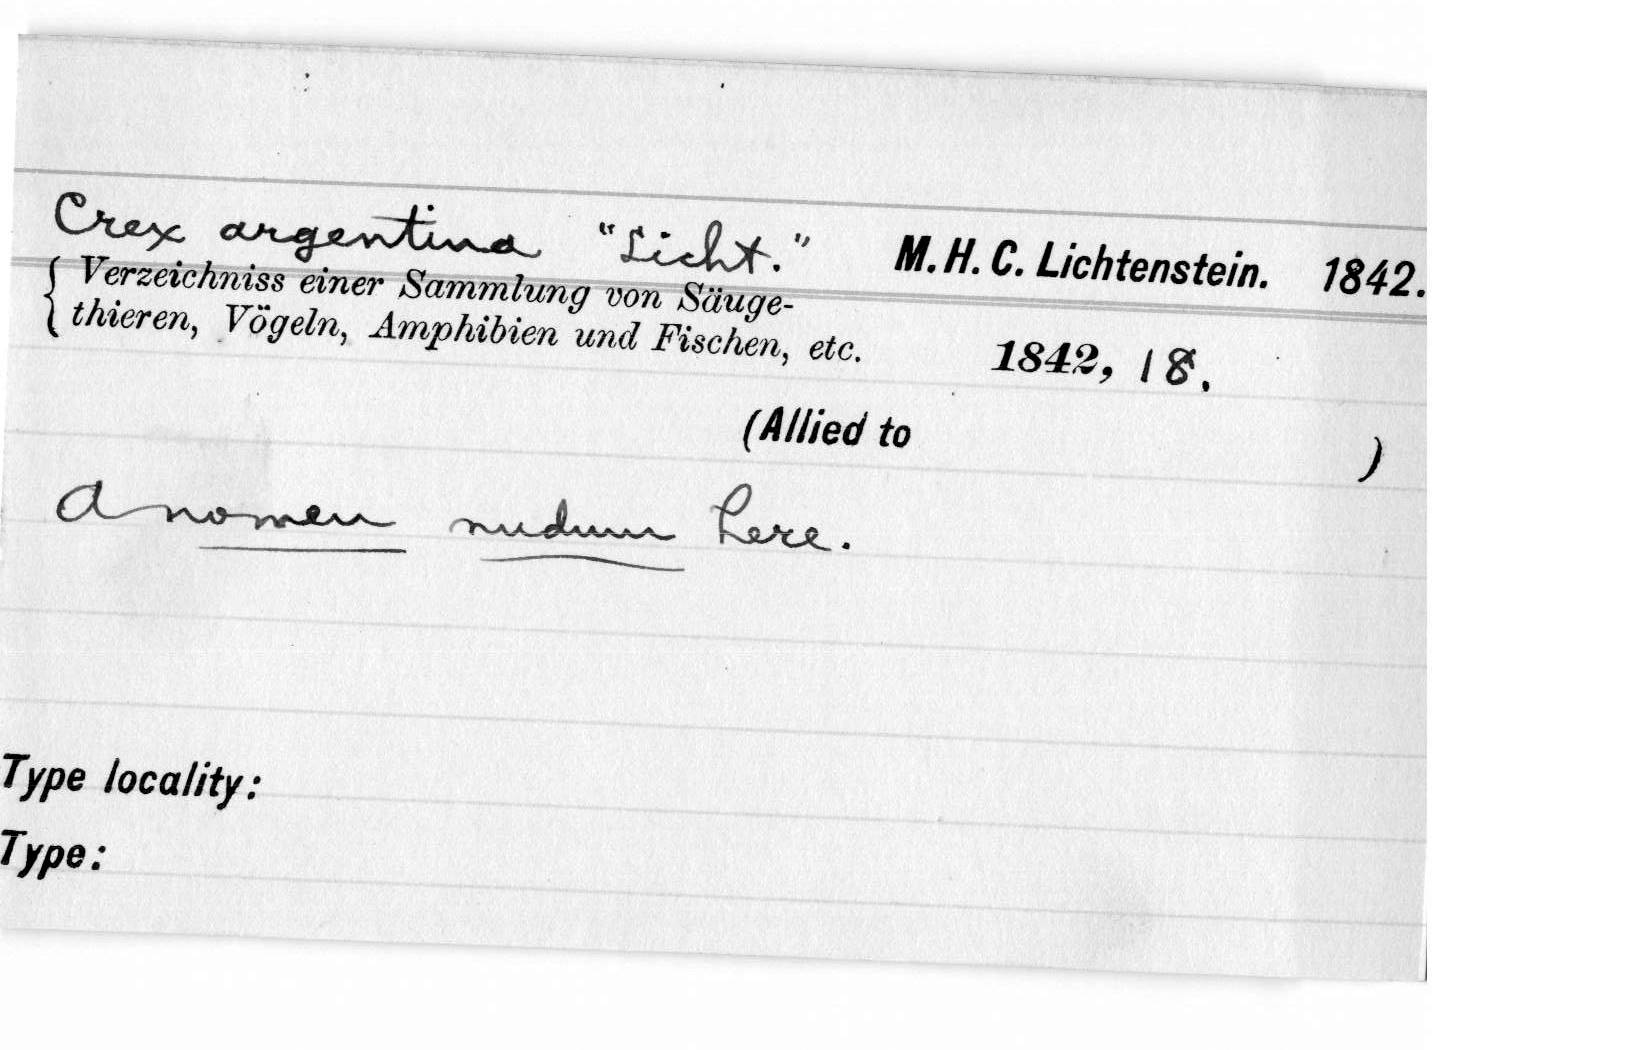 Crex argentina "Licht." M. H. C. Lichtenstein. 1842.
{ Verzeichniss einer Sammlung von Säuge-
thieren, Vögeln, Amphibien und Fischen, etc. 1842, 18.
(Allied to )
A nomen nudum here.
Type locality:
Type: